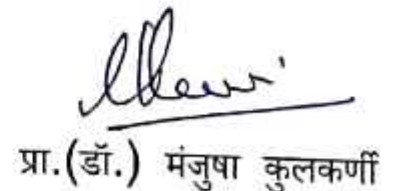 प्रा.(डॉ.) मंजुषा कुलकर्णी